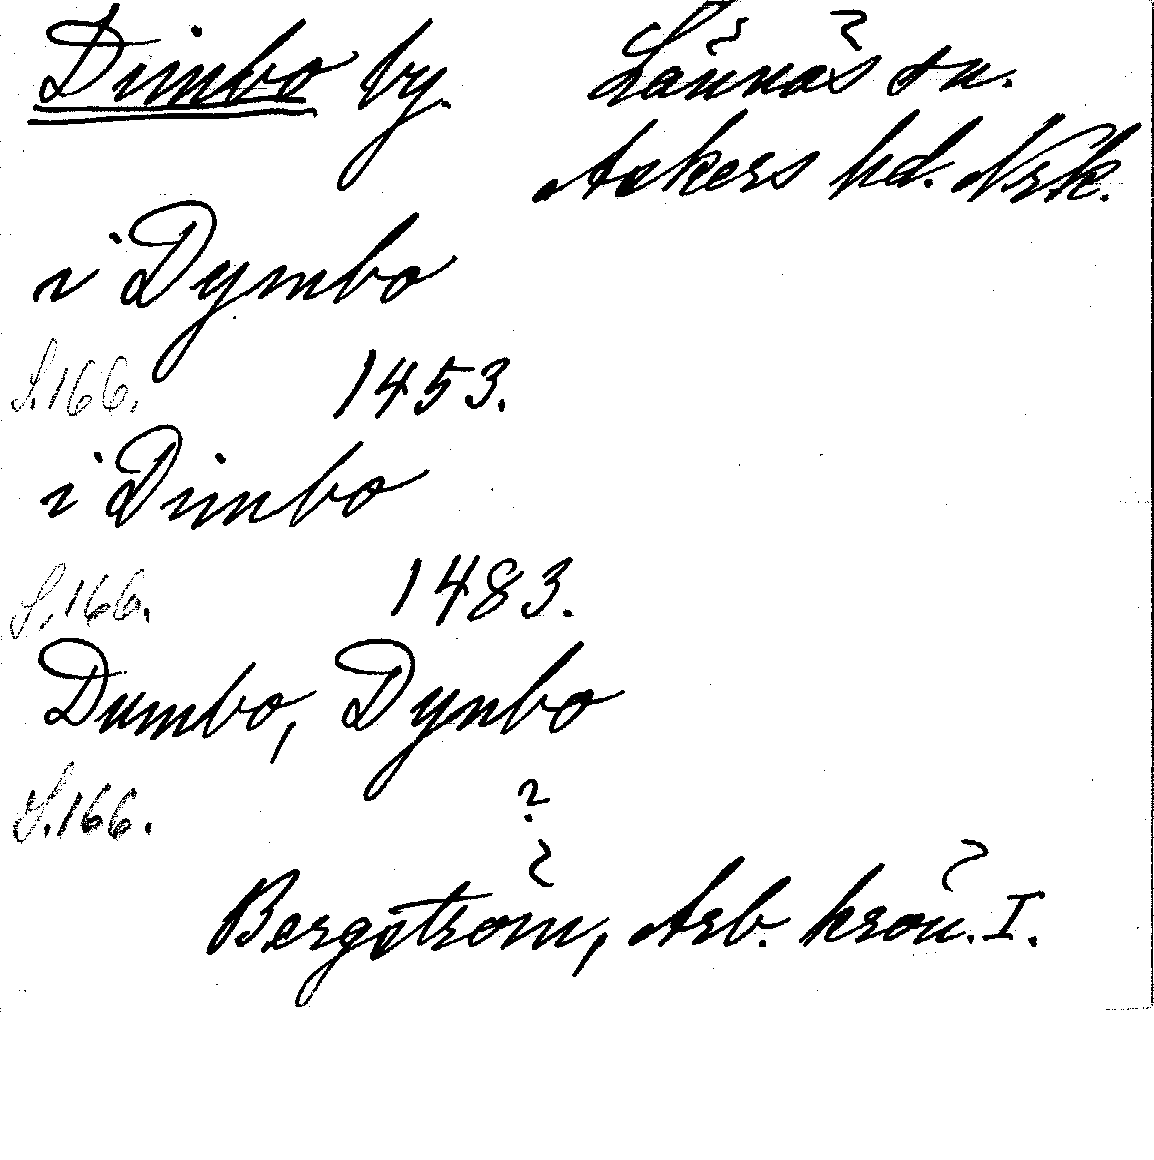 Dimbo by. Lännäs sn.
Askers hd. Nrk.
i Dymbo
S.166. 1453.
i Dimbo
S.166. 1483.
Dumbo, Dynbo
S.166. ?
Bergström, Arb. krön. I.